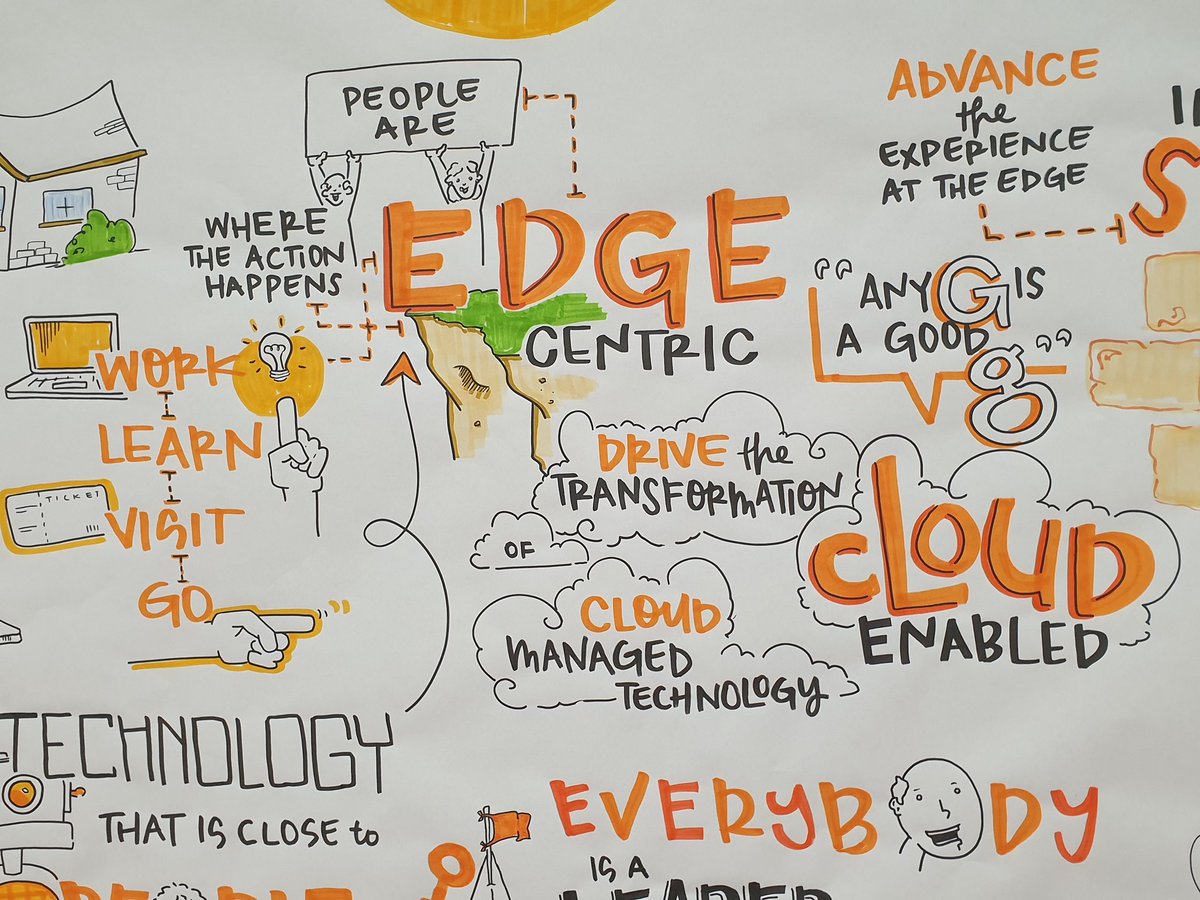 PEOPLE
ARE
EDGE
CENTRIC
WHERE
THE ACTION
HAPPENS
WORK
LEARN
TICKET
VISIT
GO
ADVANCE
the
EXPERIENCE
AT THE EDGE
S
"ANY G IS
A GOOD
g"
DRIVE the
TRANSFORMATION
OF
CLOUD
MANAGED
TECHNOLOGY
CLOUD
ENABLED
TECHNOLOGY
THAT IS CLOSE to
PEOPLE
EVERYBODY
IS A
LEADER